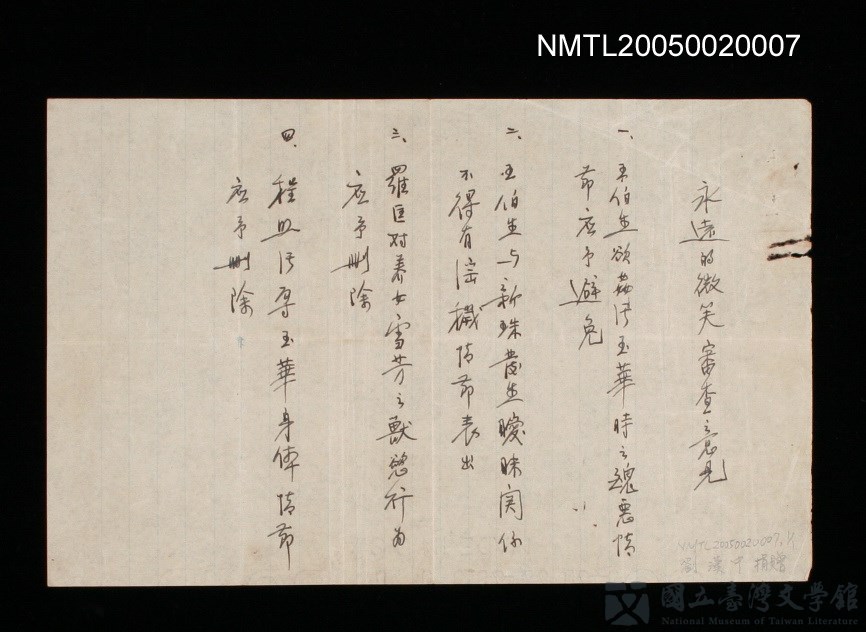 NMTL20050020007
永遠的微笑審查意見
一、王伯生欲姦污玉華時之醜惡情
節应予避免
二、王伯生与新珠發生曖昧関係
不得有淫穢情節表出
三、羅匡对养女雪芳之獸慾行为
应予刪除
四、程血污辱玉華身体情節
应予刪除
NMTL20050020007
捐贈
國立臺灣文學館
National Museum of Taiwan Literature